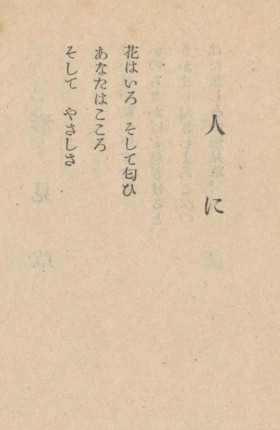 人に
花はいろ そして匂ひ
あなたはこころ
そして やさしさ